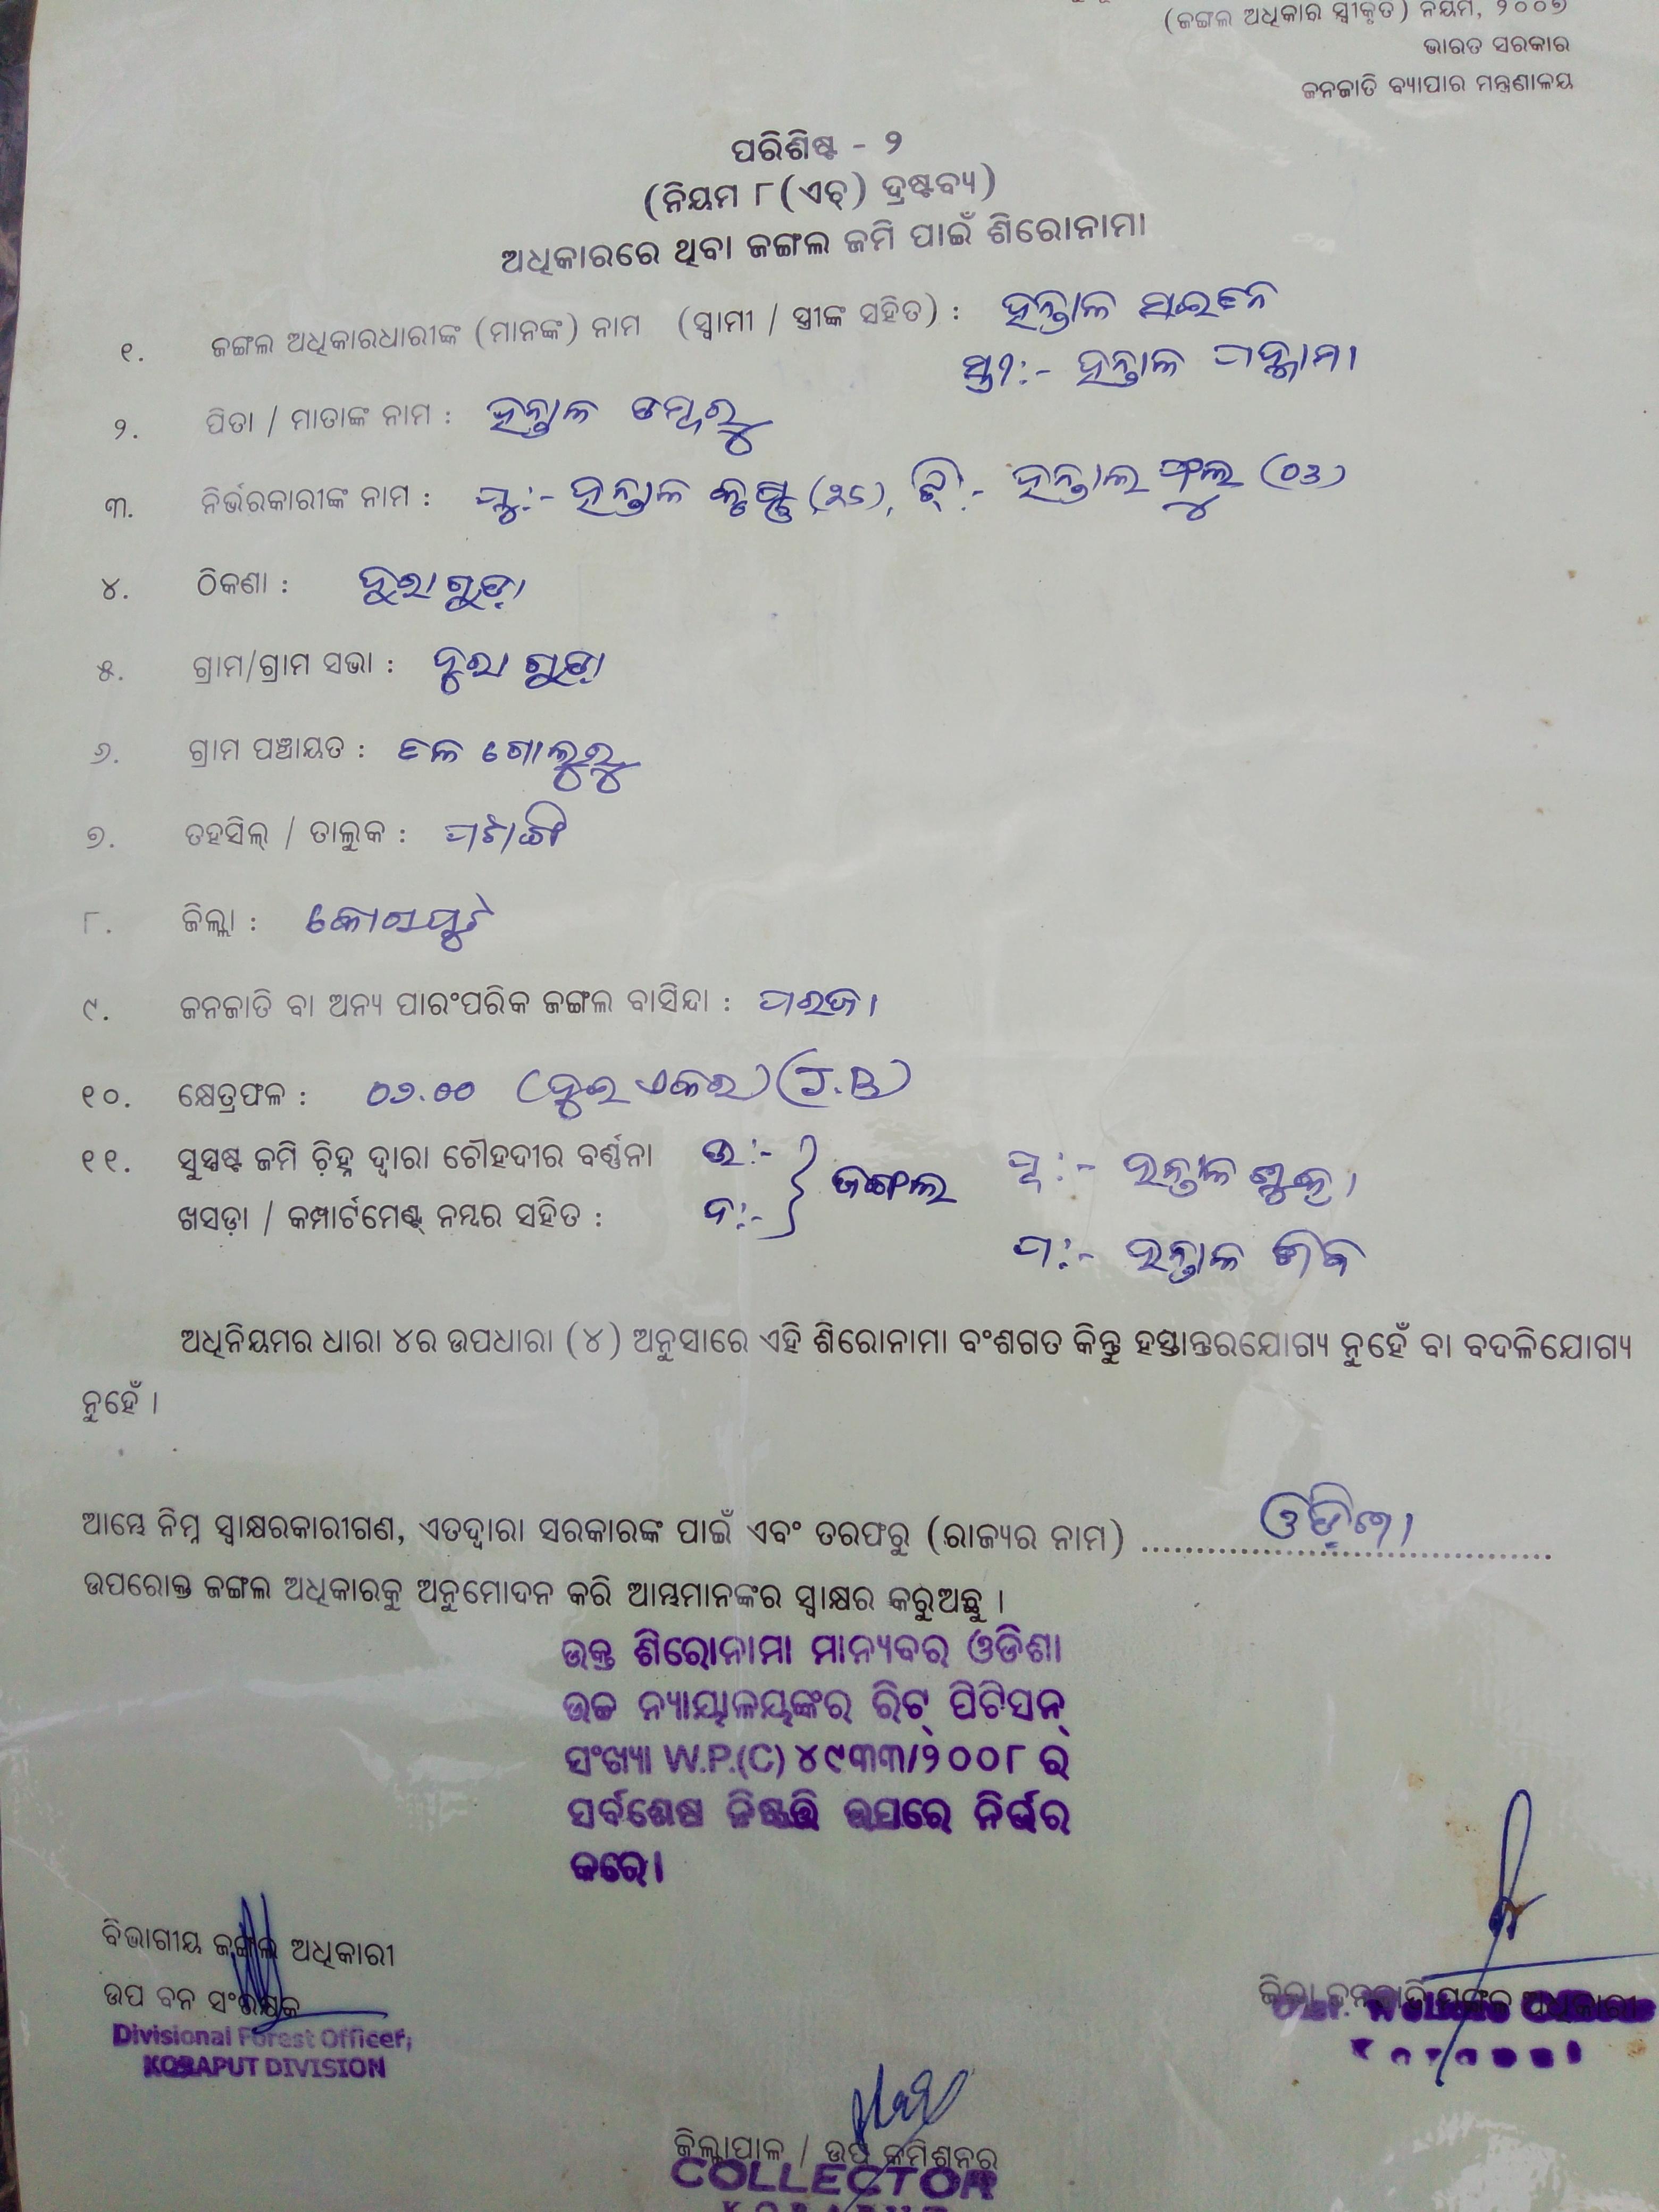 (ଜଙ୍ଗଲ ଅଧିକାର ସ୍ୱୀକୃତ) ନିୟମ, ୨୦୦୭
ଭାରତ ସରକାର
ଜନଜାତି ବ୍ୟାପାର ମନ୍ତ୍ରଣାଳୟ
ପରିଶିଷ୍ଟ - ୨
(ନିୟମ ୮(ଏଚ୍) ଦ୍ରଷ୍ଟବ୍ୟ)
ଅଧିକାରରେ ଥିବା ଜଙ୍ଗଲ ଜମି ପାଇଁ ଶିରୋନାମା
୧. ଜଙ୍ଗଲ ଅଧିକାରଧାରୀଙ୍କ (ମାନଙ୍କ) ନାମ (ସ୍ୱାମୀ / ସ୍ତ୍ରୀଙ୍କ ସହିତ) : ହନ୍ତାଳ
ସ୍ତ୍ରୀ:- ହନ୍ତାଳ
୨. ପିତା / ମାତାଙ୍କ ନାମ : ହନ୍ତାଳ ଡମ୍ବରୁ
୩. ନିର୍ଭରକାରୀଙ୍କ ନାମ : ପୁ:- ହନ୍ତାଳ କୃଷ୍ଣ ଝି:- ହନ୍ତାଲ ଫୁଲ (୦୬)
୪. ଠିକଣା : ଦୁରାଗୁଡ଼ା
୫. ଗ୍ରାମ/ଗ୍ରାମ ସଭା : ଦୁରାଗୁଡ଼ା
୬. ଗ୍ରାମ ପଞ୍ଚାୟତ : ତଳ ଗୋଲୁରୁ
୭. ତହସିଲ୍ / ତାଲୁକ : ପଟାଙ୍ଗି
୮. ଜିଲ୍ଲା : କୋରାପୁଟ
୯. ଜନଜାତି ବା ଅନ୍ୟ ପାରଂପରିକ ଜଙ୍ଗଲ ବାସିନ୍ଦା : ପରଜା
୧୦. କ୍ଷେତ୍ରଫଳ : ୦୨.୦୦ (ଦୁଇ ଏକର) (J.B)
୧୧. ସୁସ୍ପଷ୍ଟ ଜମି ଚ଼ିହ୍ନ ଦ୍ୱାରା ଚୌହଦୀର ବର୍ଣ୍ଣନା ଉ:- ଜଙ୍ଗଲ ପୂ:- ହନ୍ତାଳ
ଖସଡ଼ା / କମ୍ପାର୍ଟମେଣ୍ଟ୍ ନମ୍ବର ସହିତ : ଦ:- ପ:- ହନ୍ତାଳ
ଅଧିନିୟମର ଧାରା ୪ର ଉପଧାରା (୪) ଅନୁସାରେ ଏହି ଶିରୋନାମା ବଂଶଗତ କିନ୍ତୁ ହସ୍ତାନ୍ତରଯୋଗ୍ୟ ନୁହେଁ ବା ବଦଳିଯୋଗ୍ୟ
ନୁହେଁ ।
ଆମ୍ଭେ ନିମ୍ନ ସ୍ୱାକ୍ଷରକାରୀଗଣ, ଏତଦ୍ୱାରା ସରକାରଙ୍କ ପାଇଁ ଏବଂ ତରଫରୁ (ରାଜ୍ୟର ନାମ) ଓଡ଼ିଶା
ଉପରୋକ୍ତ ଜଙ୍ଗଲ ଅଧିକାରକୁ ଅନୁମୋଦନ କରି ଆମ୍ଭମାନଙ୍କର ସ୍ୱାକ୍ଷର କରୁଅଛୁ ।
ଉକ୍ତ ଶିରୋନାମା ମାନ୍ୟବର ଓଡିଶା
ଉଚ୍ଚ ନ୍ୟାୟାଳୟଙ୍କର ରିଟ୍ ପିଟିସନ୍
ସଂଖ୍ୟା W.P.(C) ୪୯୩୩/୨୦୦୮ ର
ସର୍ବଶେଷ ନିଷ୍ପତ୍ତି ଉପରେ ନିର୍ଭର
କରେ।
ବିଭାଗୀୟ ଜଙ୍ଗଲ ଅଧିକାରୀ
ଉପ ବନ ସଂରକ୍ଷକ
Divisional Forest Officer,
KORAPUT DIVISION
ଜିଲ୍ଲା ଜନଜାତି ମଙ୍ଗଳ ଅଧିକାରୀ
ଜିଲ୍ଲାପାଳ / ଉପ କମିଶନର
COLLECTOR
KORAPUT